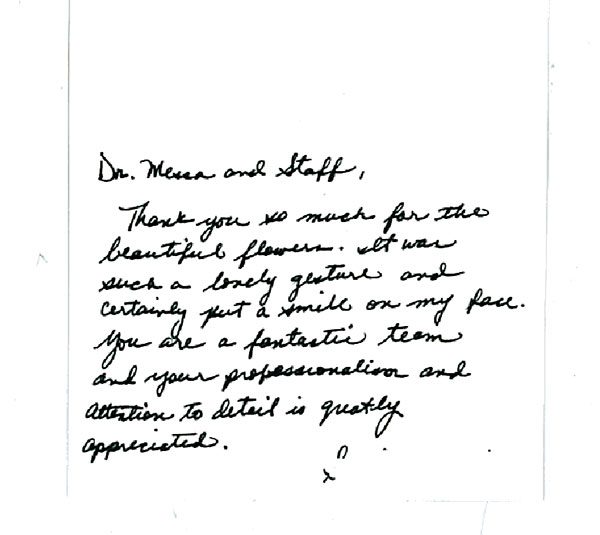 Dr. Messa and Staff,
Thank you so much for the
beautiful flowers. It was
such a lovely gesture and
certainly put a smile on my face.
You are a fantastic team
and your professionalism and
attention to detail is greatly
appreciated.